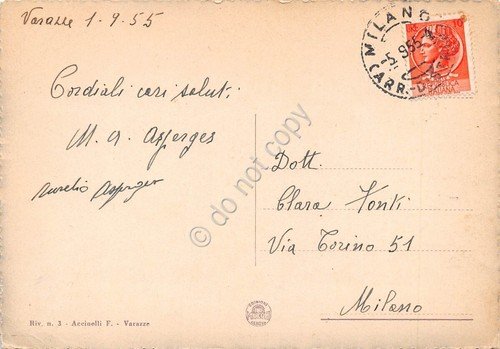 Varazze 1.9.55
Cordiali cari saluti
M. A. Asperges
Aurelio Asperges
Dott.
Clara Fonti
Via Torino 51
Milano
MILANO
5.9.55
CARR.
10
do not copy
Riv. n. 3 - Accinelli F. - Varazze